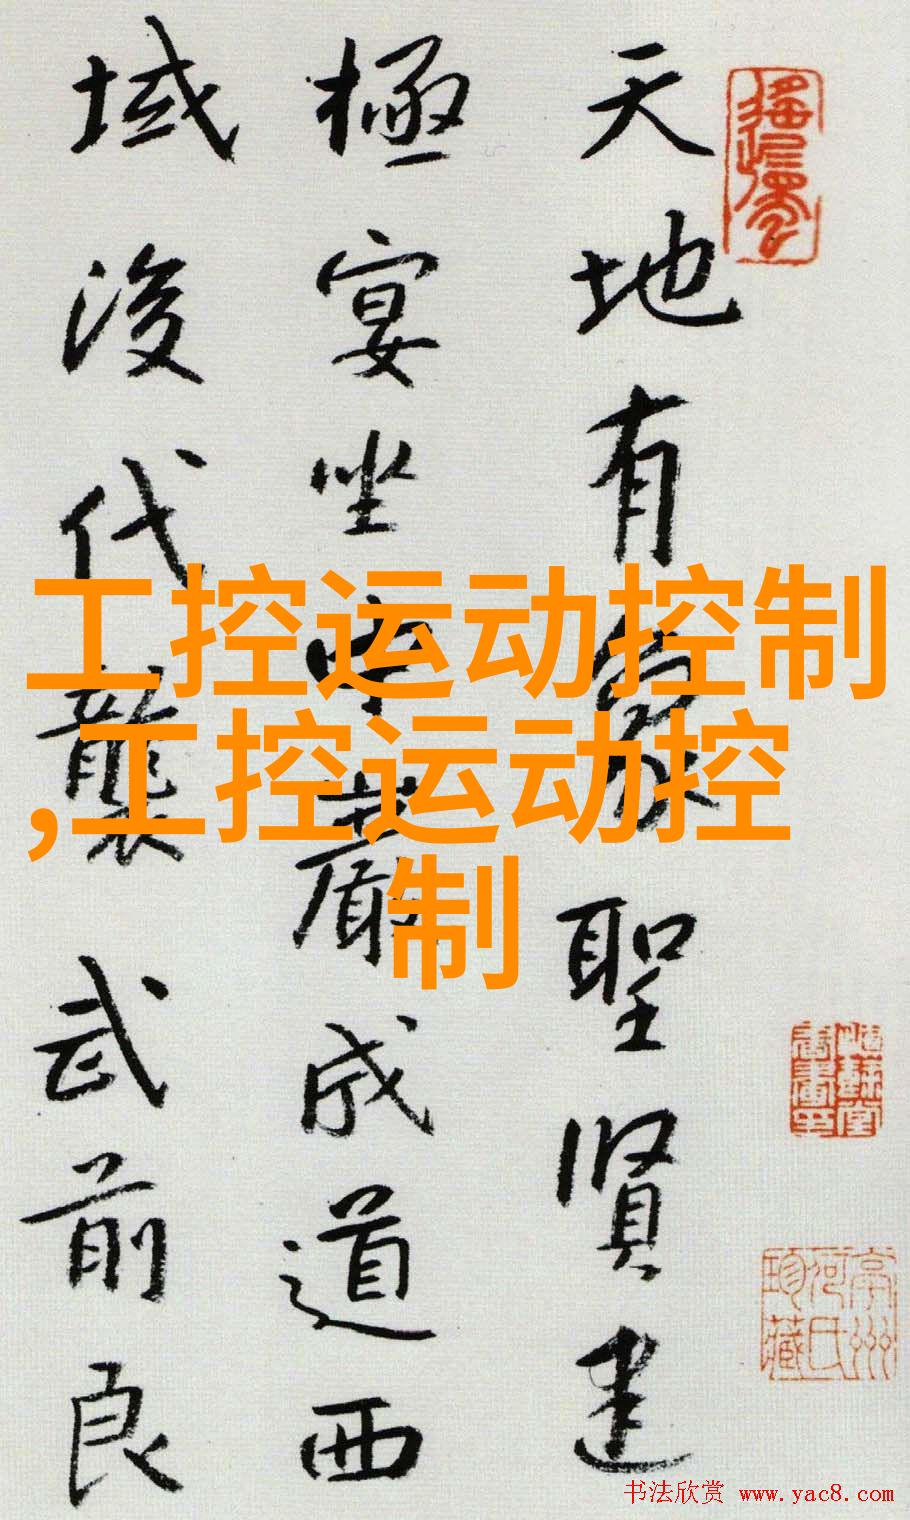 天地有象聖賢建
極宴坐中嚴成道西
域後代襲武前良
工控运动控制
,工控运动控
制
书法欣赏 www.yac8.com